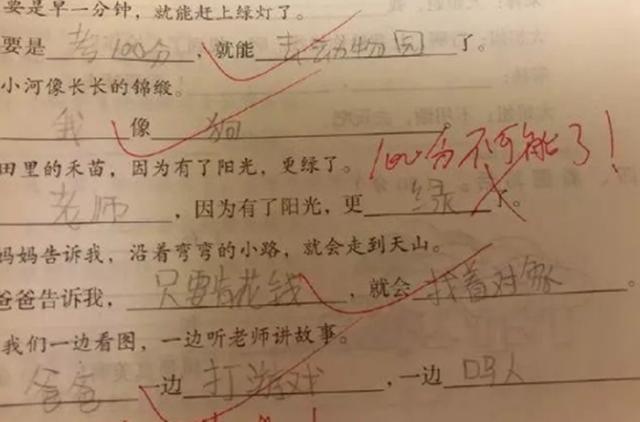 要是早一分钟，就能赶上绿灯了。
要是考100分，就能去动物园了。
小河像长长的锦缎。
我像狗。
田里的禾苗，因为有了阳光，更绿了。
100分不可能了！
老师，因为有了阳光，更绿了。
妈妈告诉我，沿着弯弯的小路，就会走到天山。
爸爸告诉我，只要肯花钱，就会找着对象
我们一边看图，一边听老师讲故事。
爸爸一边打游戏，一边吗人